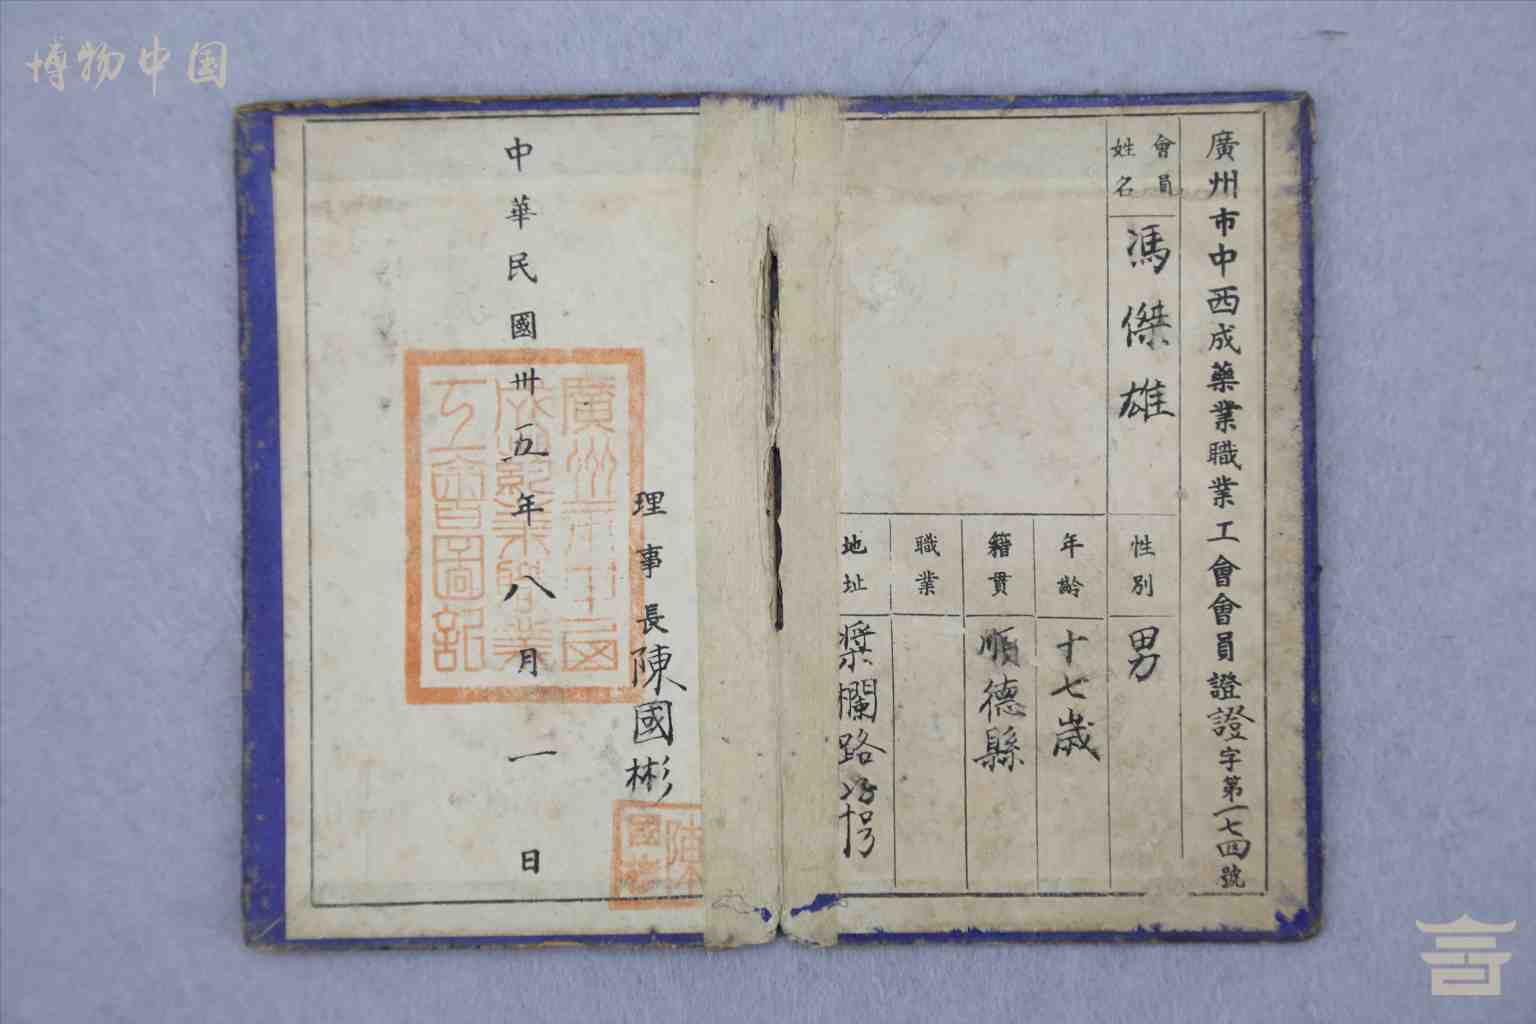 博物中国
廣州市中西成藥業職業工會會員證證字第一七四號
會員姓名
馮傑雄
性別
男
年齡
十七歲
籍貫
順德縣
職業
地址
槳欄路
號
理事長陳國彬
陳國彬
中華民國卅五年八月一日
廣州市中西成藥業職業工會圖記